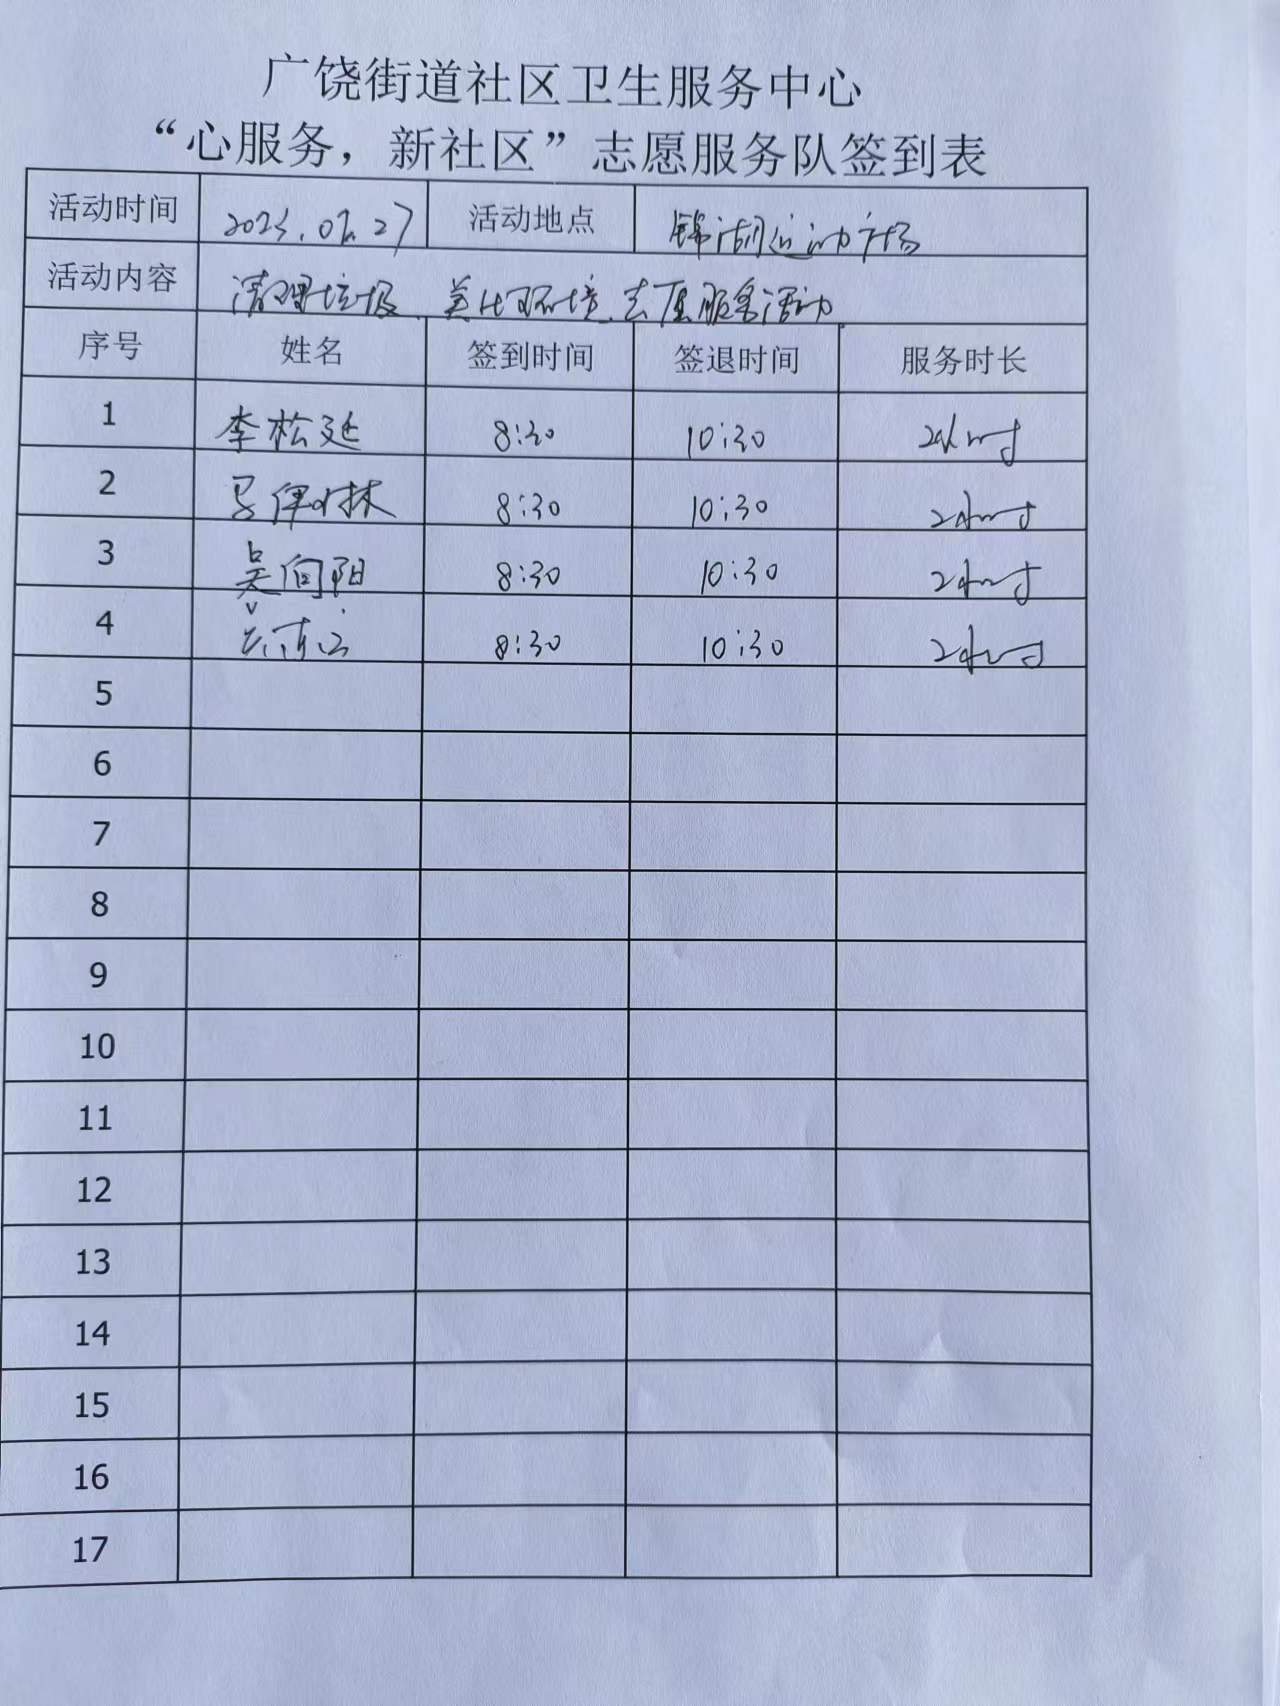 广饶街道社区卫生服务中心
“心服务，新社区”志愿服务队签到表
活动时间 活动地点 锦湖运动广场
活动内容 清理垃圾、美化环境志愿服务活动
序号 姓名 签到时间 签退时间 服务时长
1 李松延 8:30 10:30 2小时
2 8:30 10:30 2小时
3 吴向阳 8:30 10:30 2小时
4 8:30 10:30 2小时
5
6
7
8
9
10
11
12
13
14
15
16
17